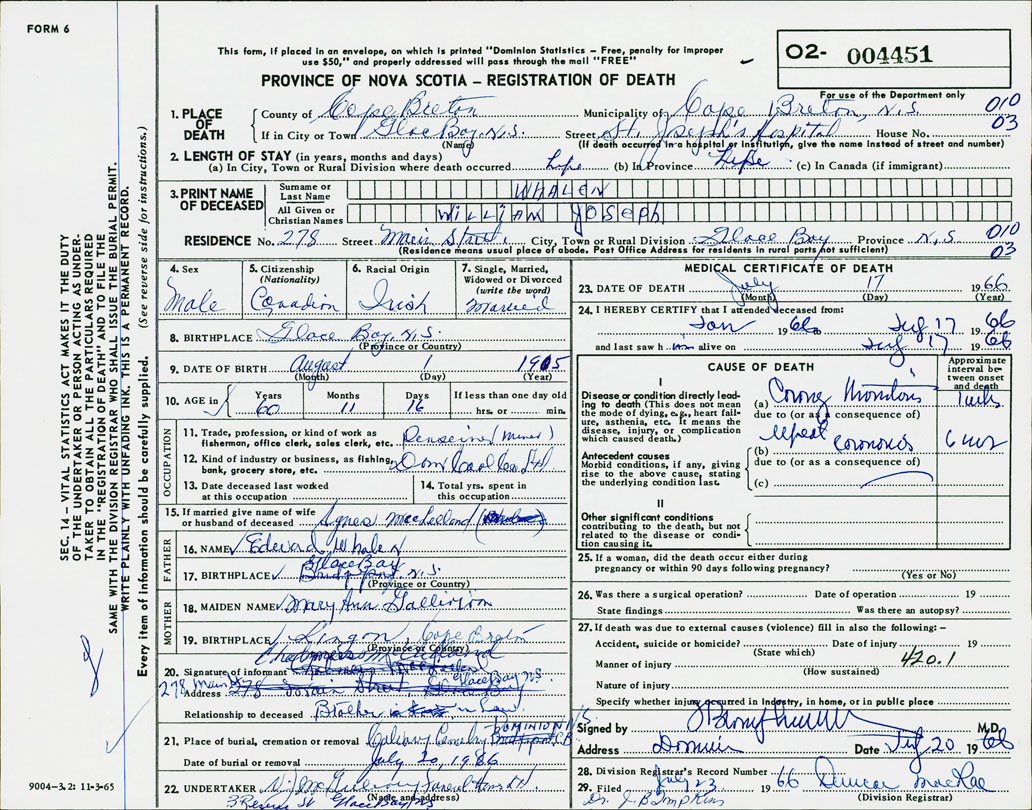 FORM 6
This form, if placed in an envelope, on which is printed "Dominion Statistics – Free, penalty for improper
use $50," and properly addressed will pass through the mail "FREE"
PROVINCE OF NOVA SCOTIA – REGISTRATION OF DEATH
O2- 004451
For use of the Department only
1. PLACE OF DEATH
County of Cape Breton Municipality of Cape Breton, N.S. 010
If in City or Town Glace Bay, N.S. Street St. Joseph's Hospital House No. 03
(Name) (If death occurred in a hospital or institution, give the name instead of street and number)
2. LENGTH OF STAY (in years, months and days)
(a) In City, Town or Rural Division where death occurred Life (b) In Province Life (c) In Canada (if immigrant)
3. PRINT NAME OF DECEASED
Surname or Last Name WHALEN
All Given or Christian Names WILLIAM JOSEPH
RESIDENCE No. 278 Street Main Street. City, Town or Rural Division Glace Bay Province N.S 010
(Residence means usual place of abode. Post Office Address for residents in rural parts not sufficient) 03
4. Sex Male
5. Citizenship (Nationality) Canadian
6. Racial Origin Irish
7. Single, Married, Widowed or Divorced (write the word) Married
8. BIRTHPLACE Glace Bay, N.S.
(Province or Country)
9. DATE OF BIRTH August 1 1905
(Month) (Day) (Year)
10. AGE in Years 60 Months 11 Days 16 If less than one day old hrs. or min.
OCCUPATION
11. Trade, profession, or kind of work as fisherman, office clerk, sales clerk, etc. Pensioner (Miner)
12. Kind of industry or business, as fishing, bank, grocery store, etc. Dom Coal Co Ltd
13. Date deceased last worked at this occupation
14. Total yrs. spent in this occupation
15. If married give name of wife or husband of deceased Agnes MacLelland
FATHER
16. NAME Edward Whalen
17. BIRTHPLACE Glace Bay N.S.
(Province or Country)
MOTHER
18. MAIDEN NAME Mary Ann Gallivan
19. BIRTHPLACE Lingan, Cape Breton
(Province or Country)
20. Signature of informant
Address 278 Main St Glace Bay N.S.
Relationship to deceased Brother in Law
21. Place of burial, cremation or removal Calvary Cemetery DOMINION N/S
Date of burial or removal July 20, 1966
22. UNDERTAKER
(Name and address)
3 Reserve St Glace Bay NS
MEDICAL CERTIFICATE OF DEATH
23. DATE OF DEATH July 17 1966
(Month) (Day) (Year)
24. I HEREBY CERTIFY that I attended deceased from:
Jan 1966 July 17 1966
and last saw h im alive on July 17 1966
CAUSE OF DEATH
Approximate interval between onset and death
I
Disease or condition directly leading to death (This does not mean the mode of dying, e.g., heart failure, asthenia, etc. It means the disease, injury, or complication which caused death.)
(a) Coronary Thrombosis
due to (or as a consequence of)
Antecedent causes
Morbid conditions, if any, giving rise to the above cause, stating the underlying condition last.
(b) repeat
due to (or as a consequence of)
(c)
II
Other significant conditions contributing to the death, but not related to the disease or condition causing it.
25. If a woman, did the death occur either during
pregnancy or within 90 days following pregnancy?
(Yes or No)
26. Was there a surgical operation? Date of operation 19
State findings Was there an autopsy?
27. If death was due to external causes (violence) fill in also the following: –
Accident, suicide or homicide? Date of injury 19
(State which)
Manner of injury 420.1
(How sustained)
Nature of injury
Specify whether injury occurred in Industry, in home, or in public place
Signed by M.D.
Address Dominion Date July 20 1966
28. Division Registrar's Record Number
29. Filed July 23 1966 Duncan MacRae
(Division Registrar)
Dr. J B Tompkins
SEC. 14 – VITAL STATISTICS ACT MAKES IT THE DUTY
OF THE UNDERTAKER OR PERSON ACTING AS UNDER-
TAKER TO OBTAIN ALL THE PARTICULARS REQUIRED
IN THE "REGISTRATION OF DEATH" AND TO FILE THE
SAME WITH THE DIVISION REGISTRAR WHO SHALL ISSUE THE BURIAL PERMIT.
WRITE PLAINLY WITH UNFADING INK. THIS IS A PERMANENT RECORD.
Every item of information should be carefully supplied. (See reverse side for instructions.)
9004–3, 21 11-3-65